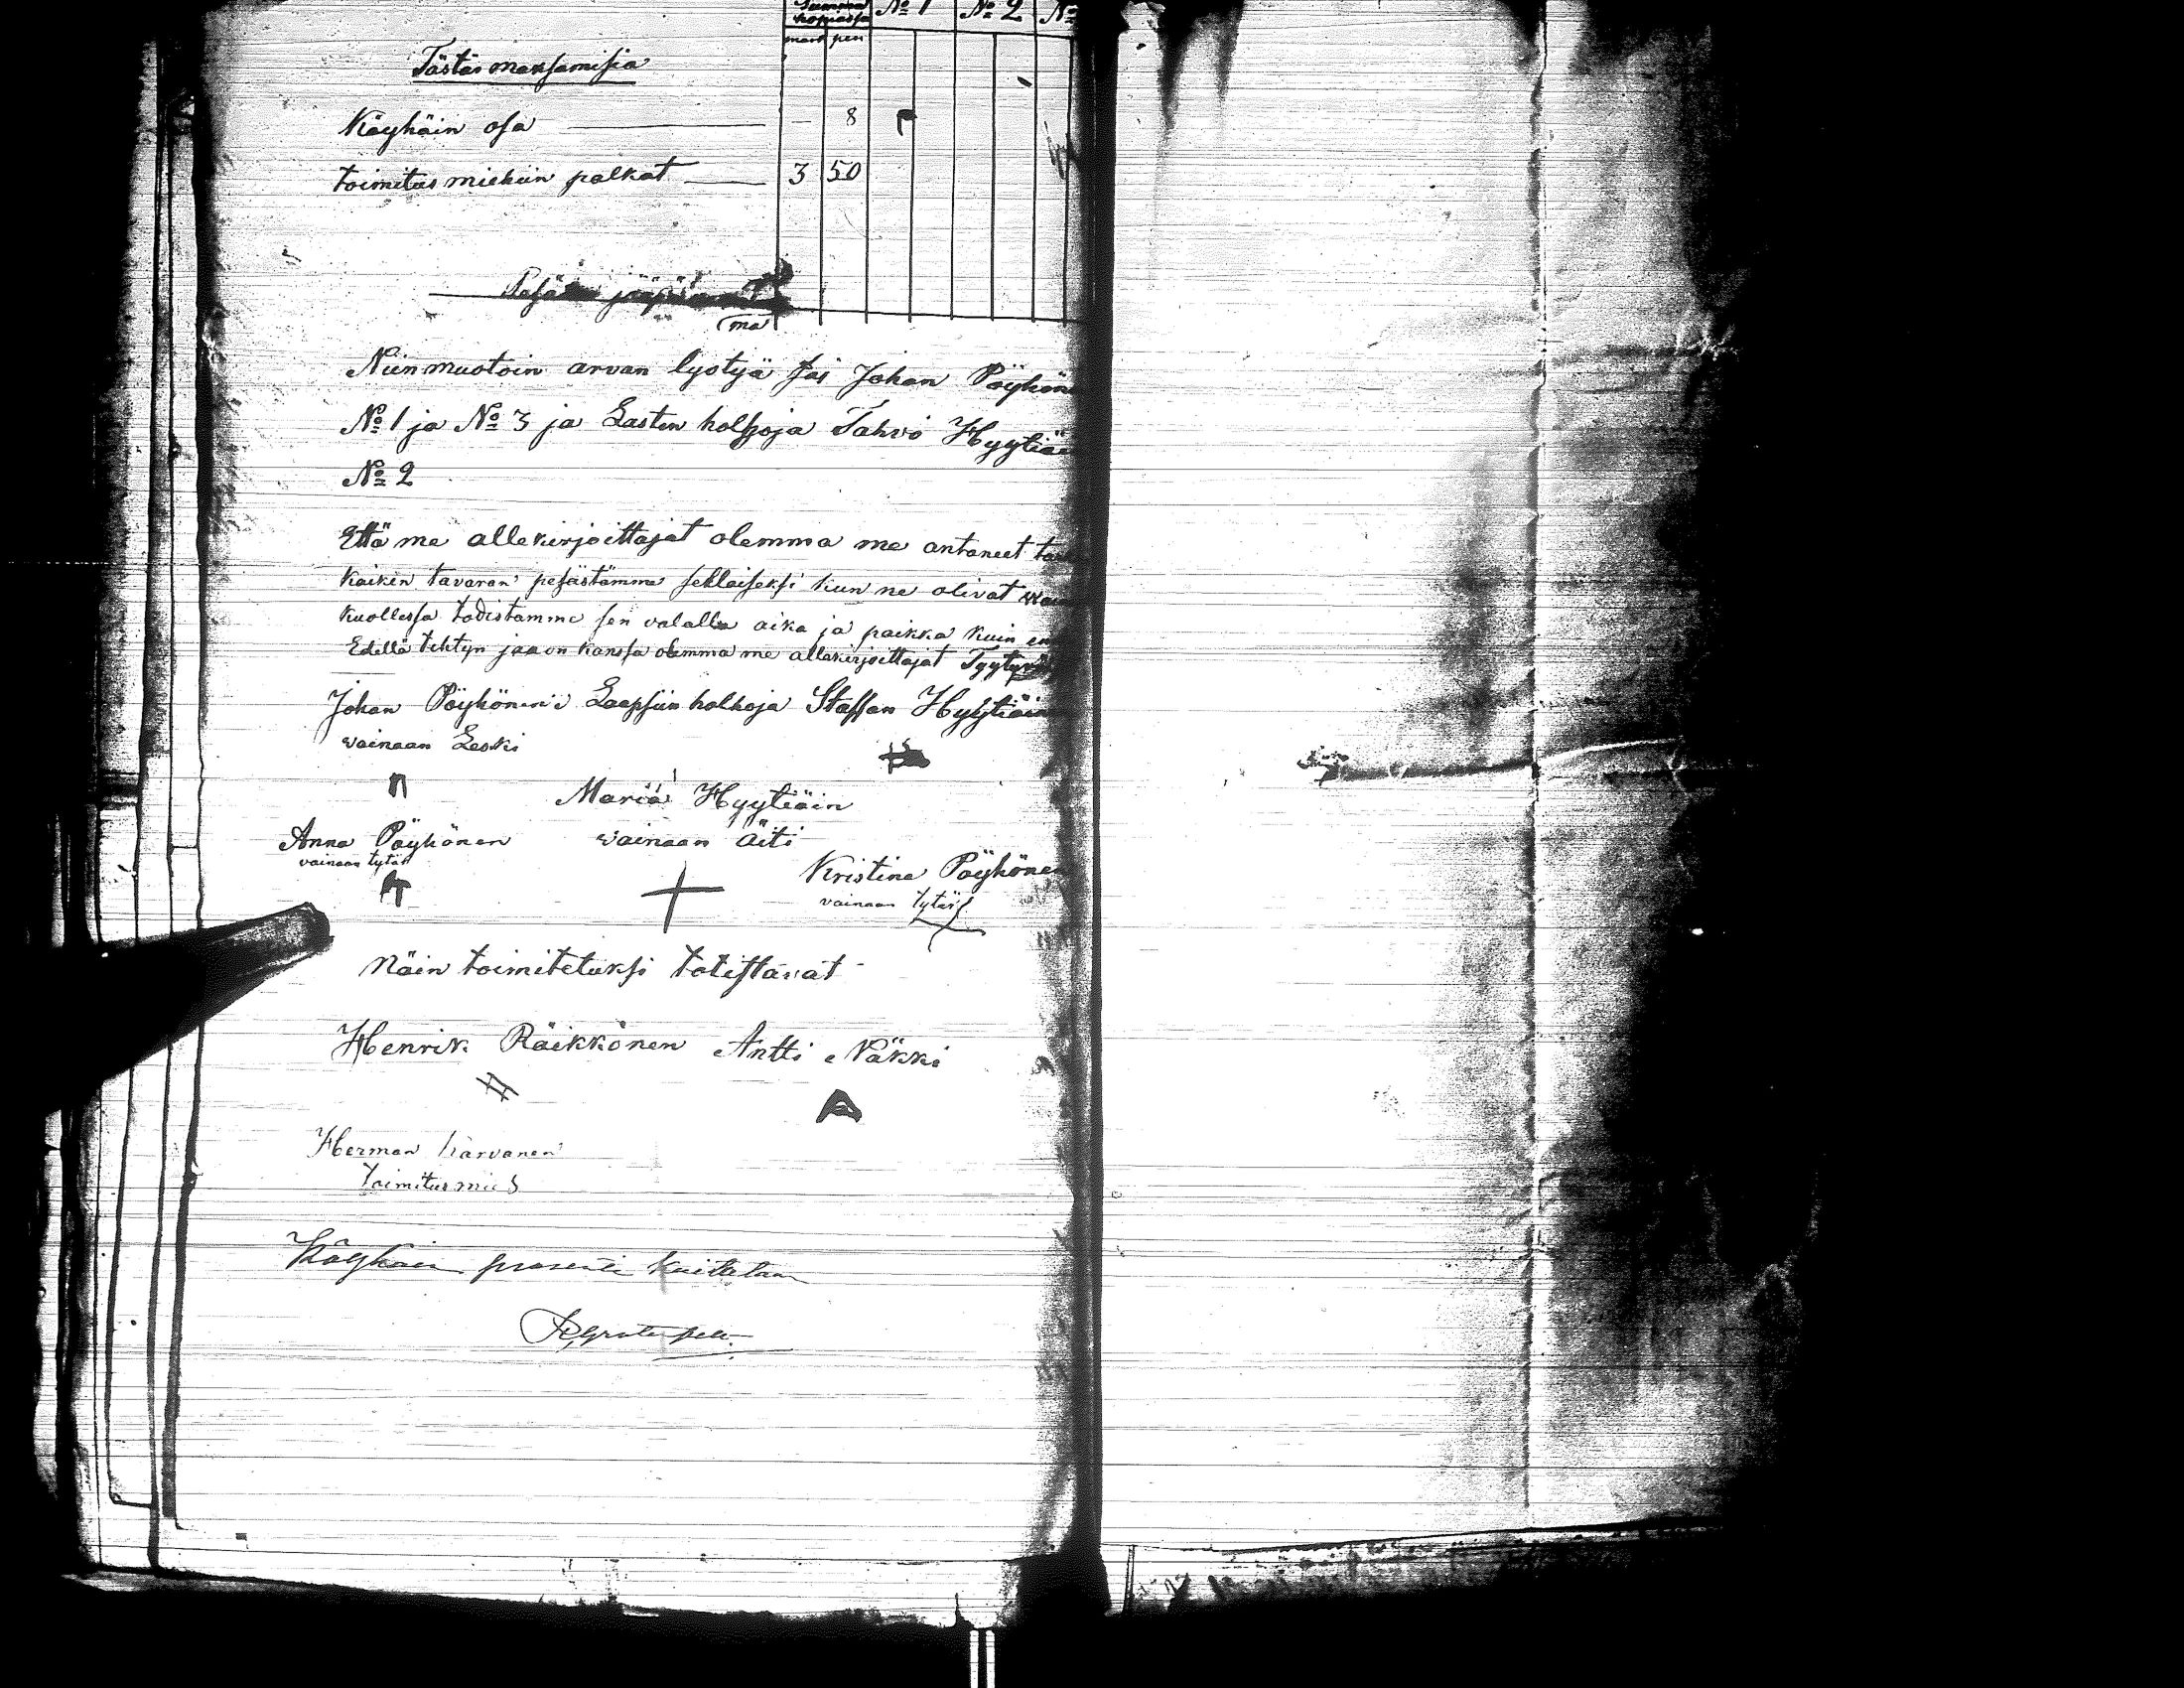 Summa
kopiassa No 1 No 2 No
mark pen
Tästä maksamisia
Köyhäin osa — 8
toimitus miehiin palkat 3 50
Niinmuotoin arvan lyötyä sai Johan Pöyhöne
No 1 ja No 3 ja Lasten holhoja Tahvo Hyytiäi
No 2
Että me allekirjoittajat olemma me antaneet
kaiken tavaran pesästämme sellaiseksi kun ne olivat
kuollessa todistamme sen valalla aika ja paikka kuin en
Edellä tehtyn jaon kanssa olemma me allekirjoittajat Tyytyvä
Johan Pöyhönen Laapsiin holhoja Staffan Hyytiäin
vainaan Leski
Maria Hyytiäin
Anna Pöyhönen vainaan äiti
vainaan tytär
Kristina Pöyhönen
vainaan tytär
Näin toimitetuksi totistavat
Henrik Räikkönen Antti Näkki
Herman Karvanen
toimitusmies
Köyhäin prosenti kuitataan